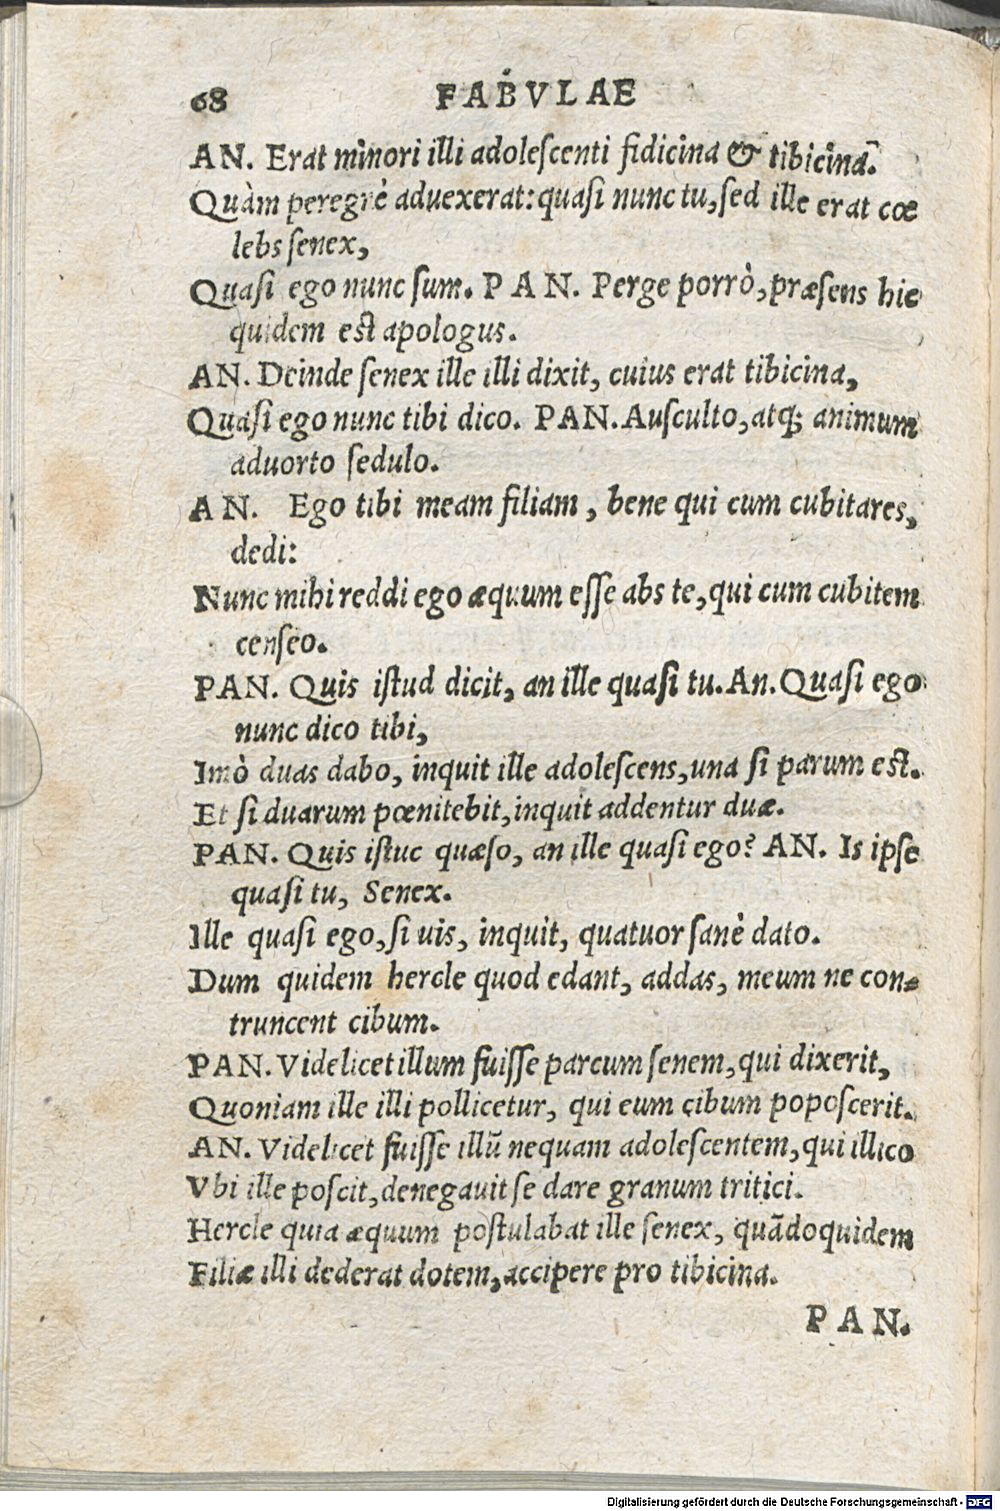 68 FABVLAE
AN. Erat minori illi adolescenti fidicina & tibicina.
Quàm peregrè aduexerat: quasi nunc tu, sed ille erat cœ
lebs senex,
Quasi ego nunc sum. PAN. Perge porrò, præsens hic
quidem est apologus.
AN. Deinde senex ille illi dixit, cuius erat tibicina,
Quasi ego nunc tibi dico. PAN. Ausculto, atq; animum
aduorto sedulo.
AN. Ego tibi meam filiam, bene qui cum cubitares,
dedi:
Nunc mihi reddi ego æquum esse abs te, qui cum cubitem
censeo.
PAN. Quis istud dicit, an ille quasi tu. An. Quasi ego
nunc dico tibi,
Imò duas dabo, inquit ille adolescens, una si parum est.
Et si duarum pœnitebit, inquit addentur duæ.
PAN. Quis istuc quæso, an ille quasi ego? AN. Is ipse
quasi tu, Senex.
Ille quasi ego, si uis, inquit, quatuor sanè dato.
Dum quidem hercle quod edant, addas, meum ne con-
truncent cibum.
PAN. Videlicet illum fuisse parcum senem, qui dixerit,
Quoniam ille illi pollicetur, qui eum cibum poposcerit.
AN. Videlicet fuisse illũ nequam adolescentem, qui illico
Vbi ille poscit, denegauit se dare granum tritici.
Hercle quia æquum postulabat ille senex, quãdoquidem
Filiæ illi dederat dotem, accipere pro tibicina.
PAN.
Digitalisierung gefördert durch die Deutsche Forschungsgemeinschaft - DFG